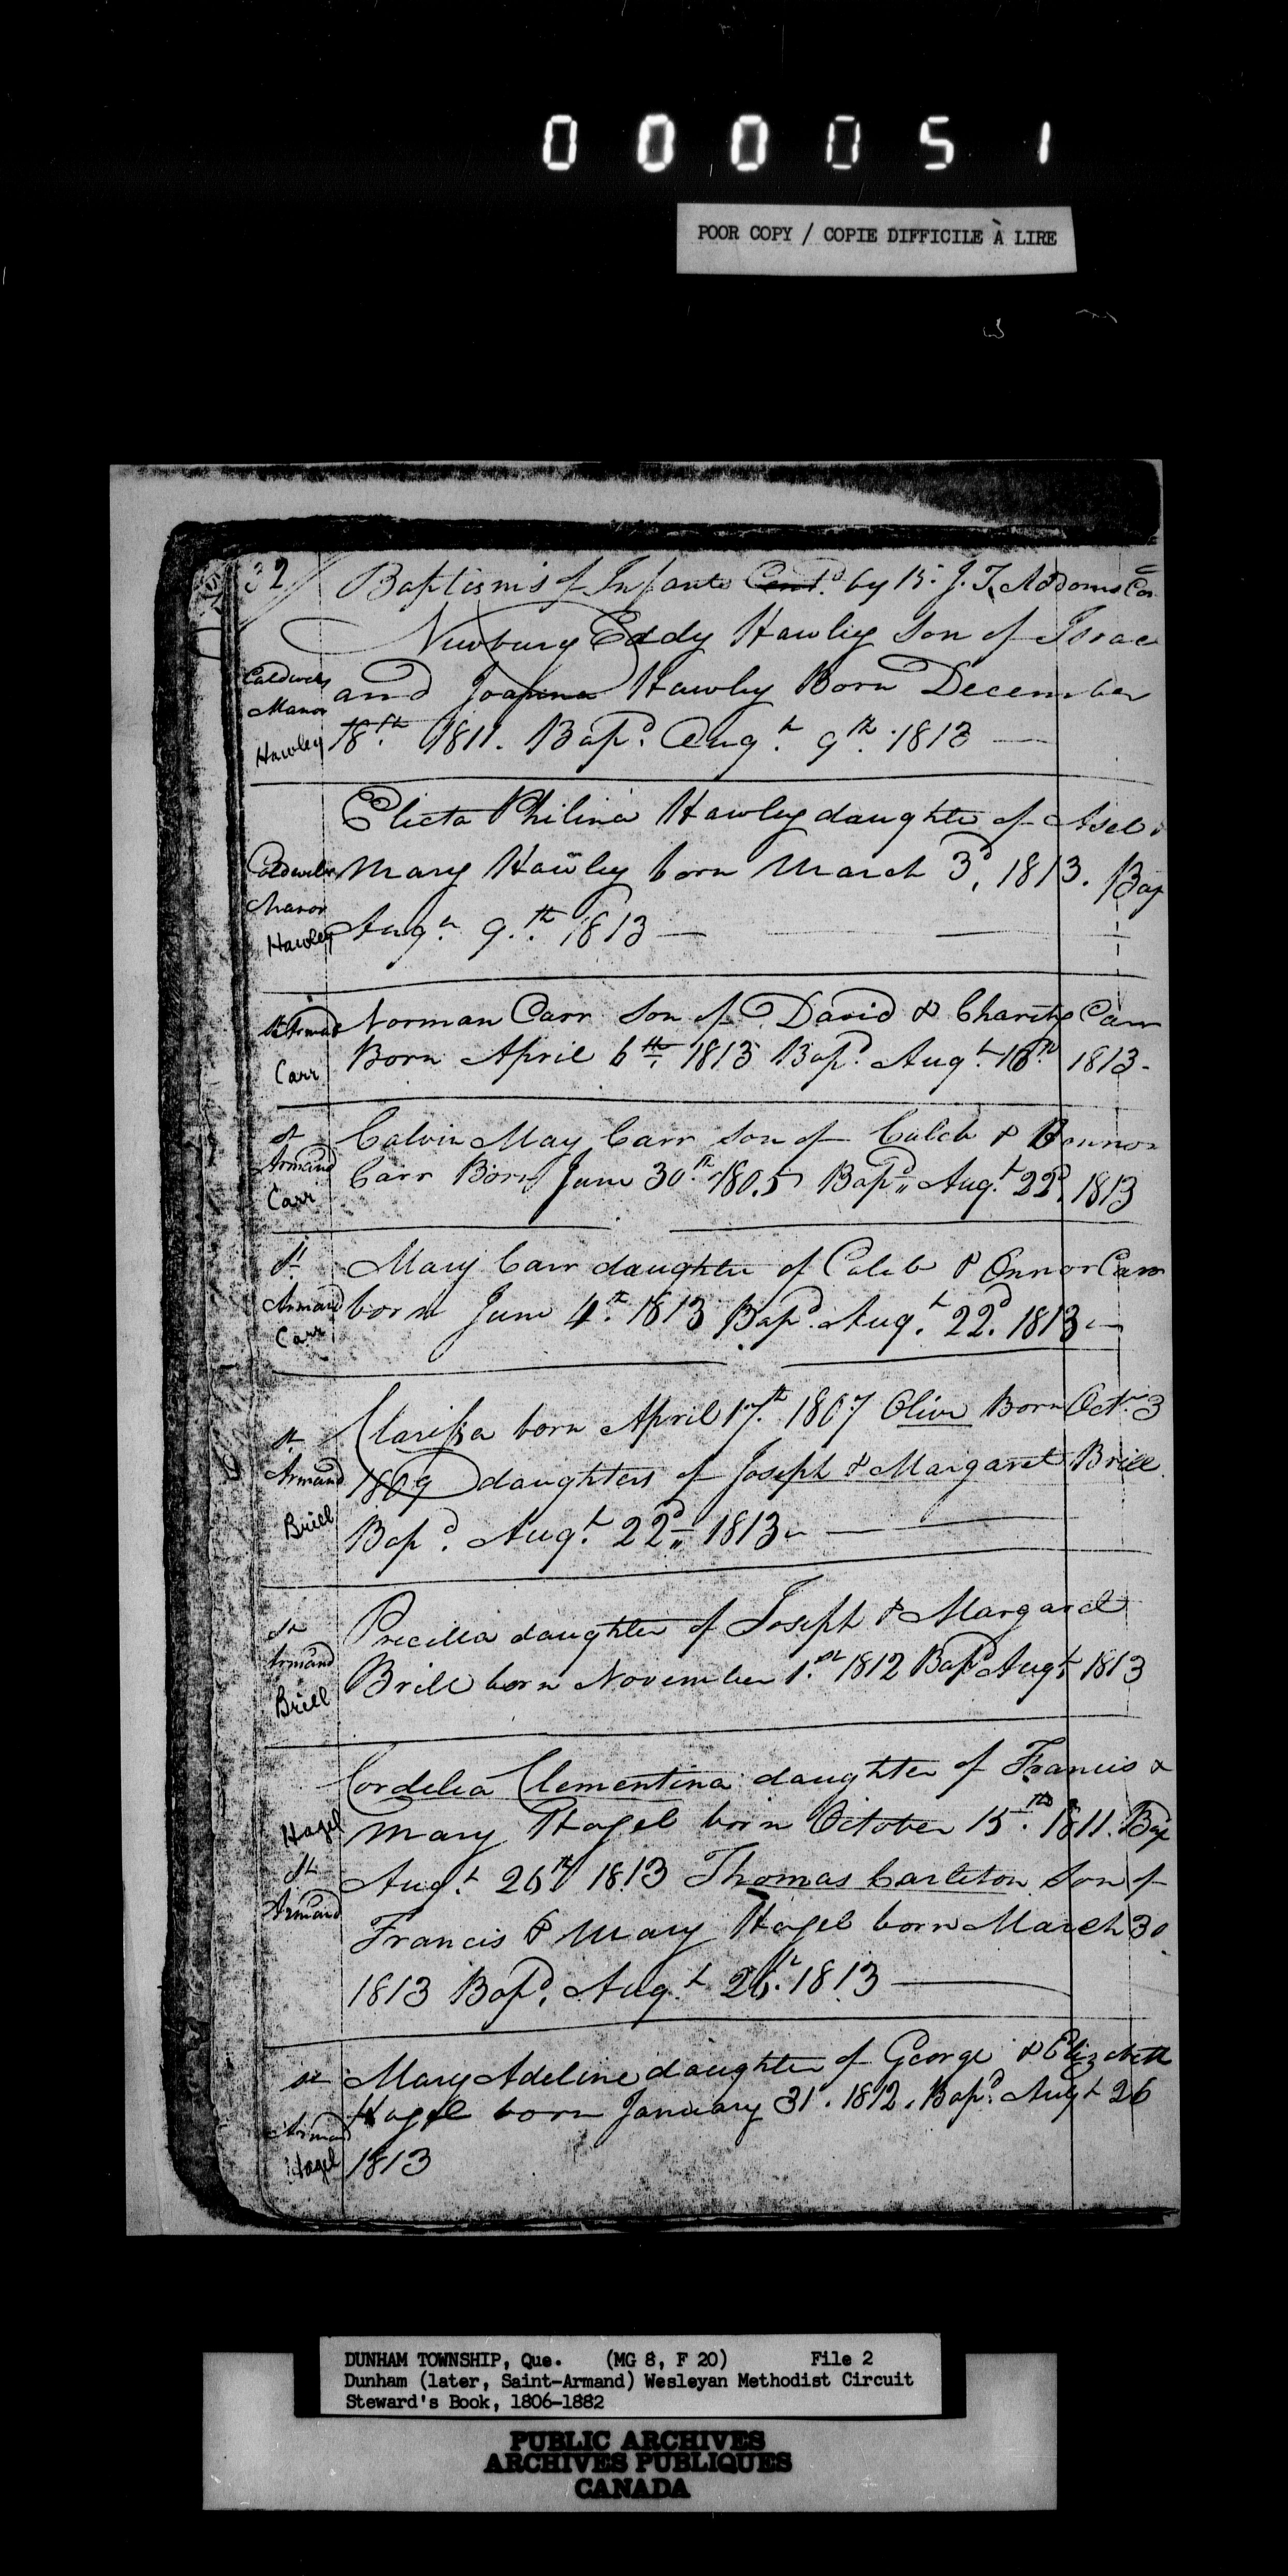 000051
POOR COPY / COPIE DIFFICILE À LIRE
32 Baptisms of Infants Contd. by J. T. Addoms
Newbury Eddy Hawley Son of Isaac
Caldwels Manor and Joanna Hawley Born December
Hawley 18th 1811. Bapd. Augt. 9th. 1813
Electa Philina Hawley daughter of Asel &
Caldwels Manor Mary Hawley born March 3d, 1813. Bap
Hawley Augt 9.th 1813
St Armand Norman Carr Son of David & Charity Carr
Carr Born April 6th. 1813 Bapd. Augt. 16th 1813.
St Calvin May Carr Son of Caleb &
Armand Carr Carr Born June 30th 1805 Bapd. Augt. 22d. 1813
St Mary Carr daughter of Caleb & Onnor Carr
Armand Carr born June 4th. 1813 Bapd. Augt. 22d. 1813
St Clarissa born April 17th. 1807 Olive Born Octr. 3
Armand 1809 daughters of Joseph & Margaret Brill
Brill Bapd. Augt. 22d. 1813
St Precilla daughter of Joseph & Margaret
Armand Brill Brill born November 1.st 1812 Bapd Augt 1813
Cordelia Clementina daughter of Francis &
Hagel Mary Hagel born October 15th. 1811. Bap
St Augt. 26th 1813 Thomas Carleton Son of
Armand Francis & Mary Hagel born March 30
1813 Bapd. Augt. 26th. 1813
St Mary Adeline daughter of George & Elizabeth
Armand Hagel born January 31st. 1812. Bapd. Augt 26
Hagel 1813
DUNHAM TOWNSHIP, Que. (MG 8, F 20) File 2
Dunham (later, Saint-Armand) Wesleyan Methodist Circuit
Steward's Book, 1806-1882
PUBLIC ARCHIVES
ARCHIVES PUBLIQUES
CANADA